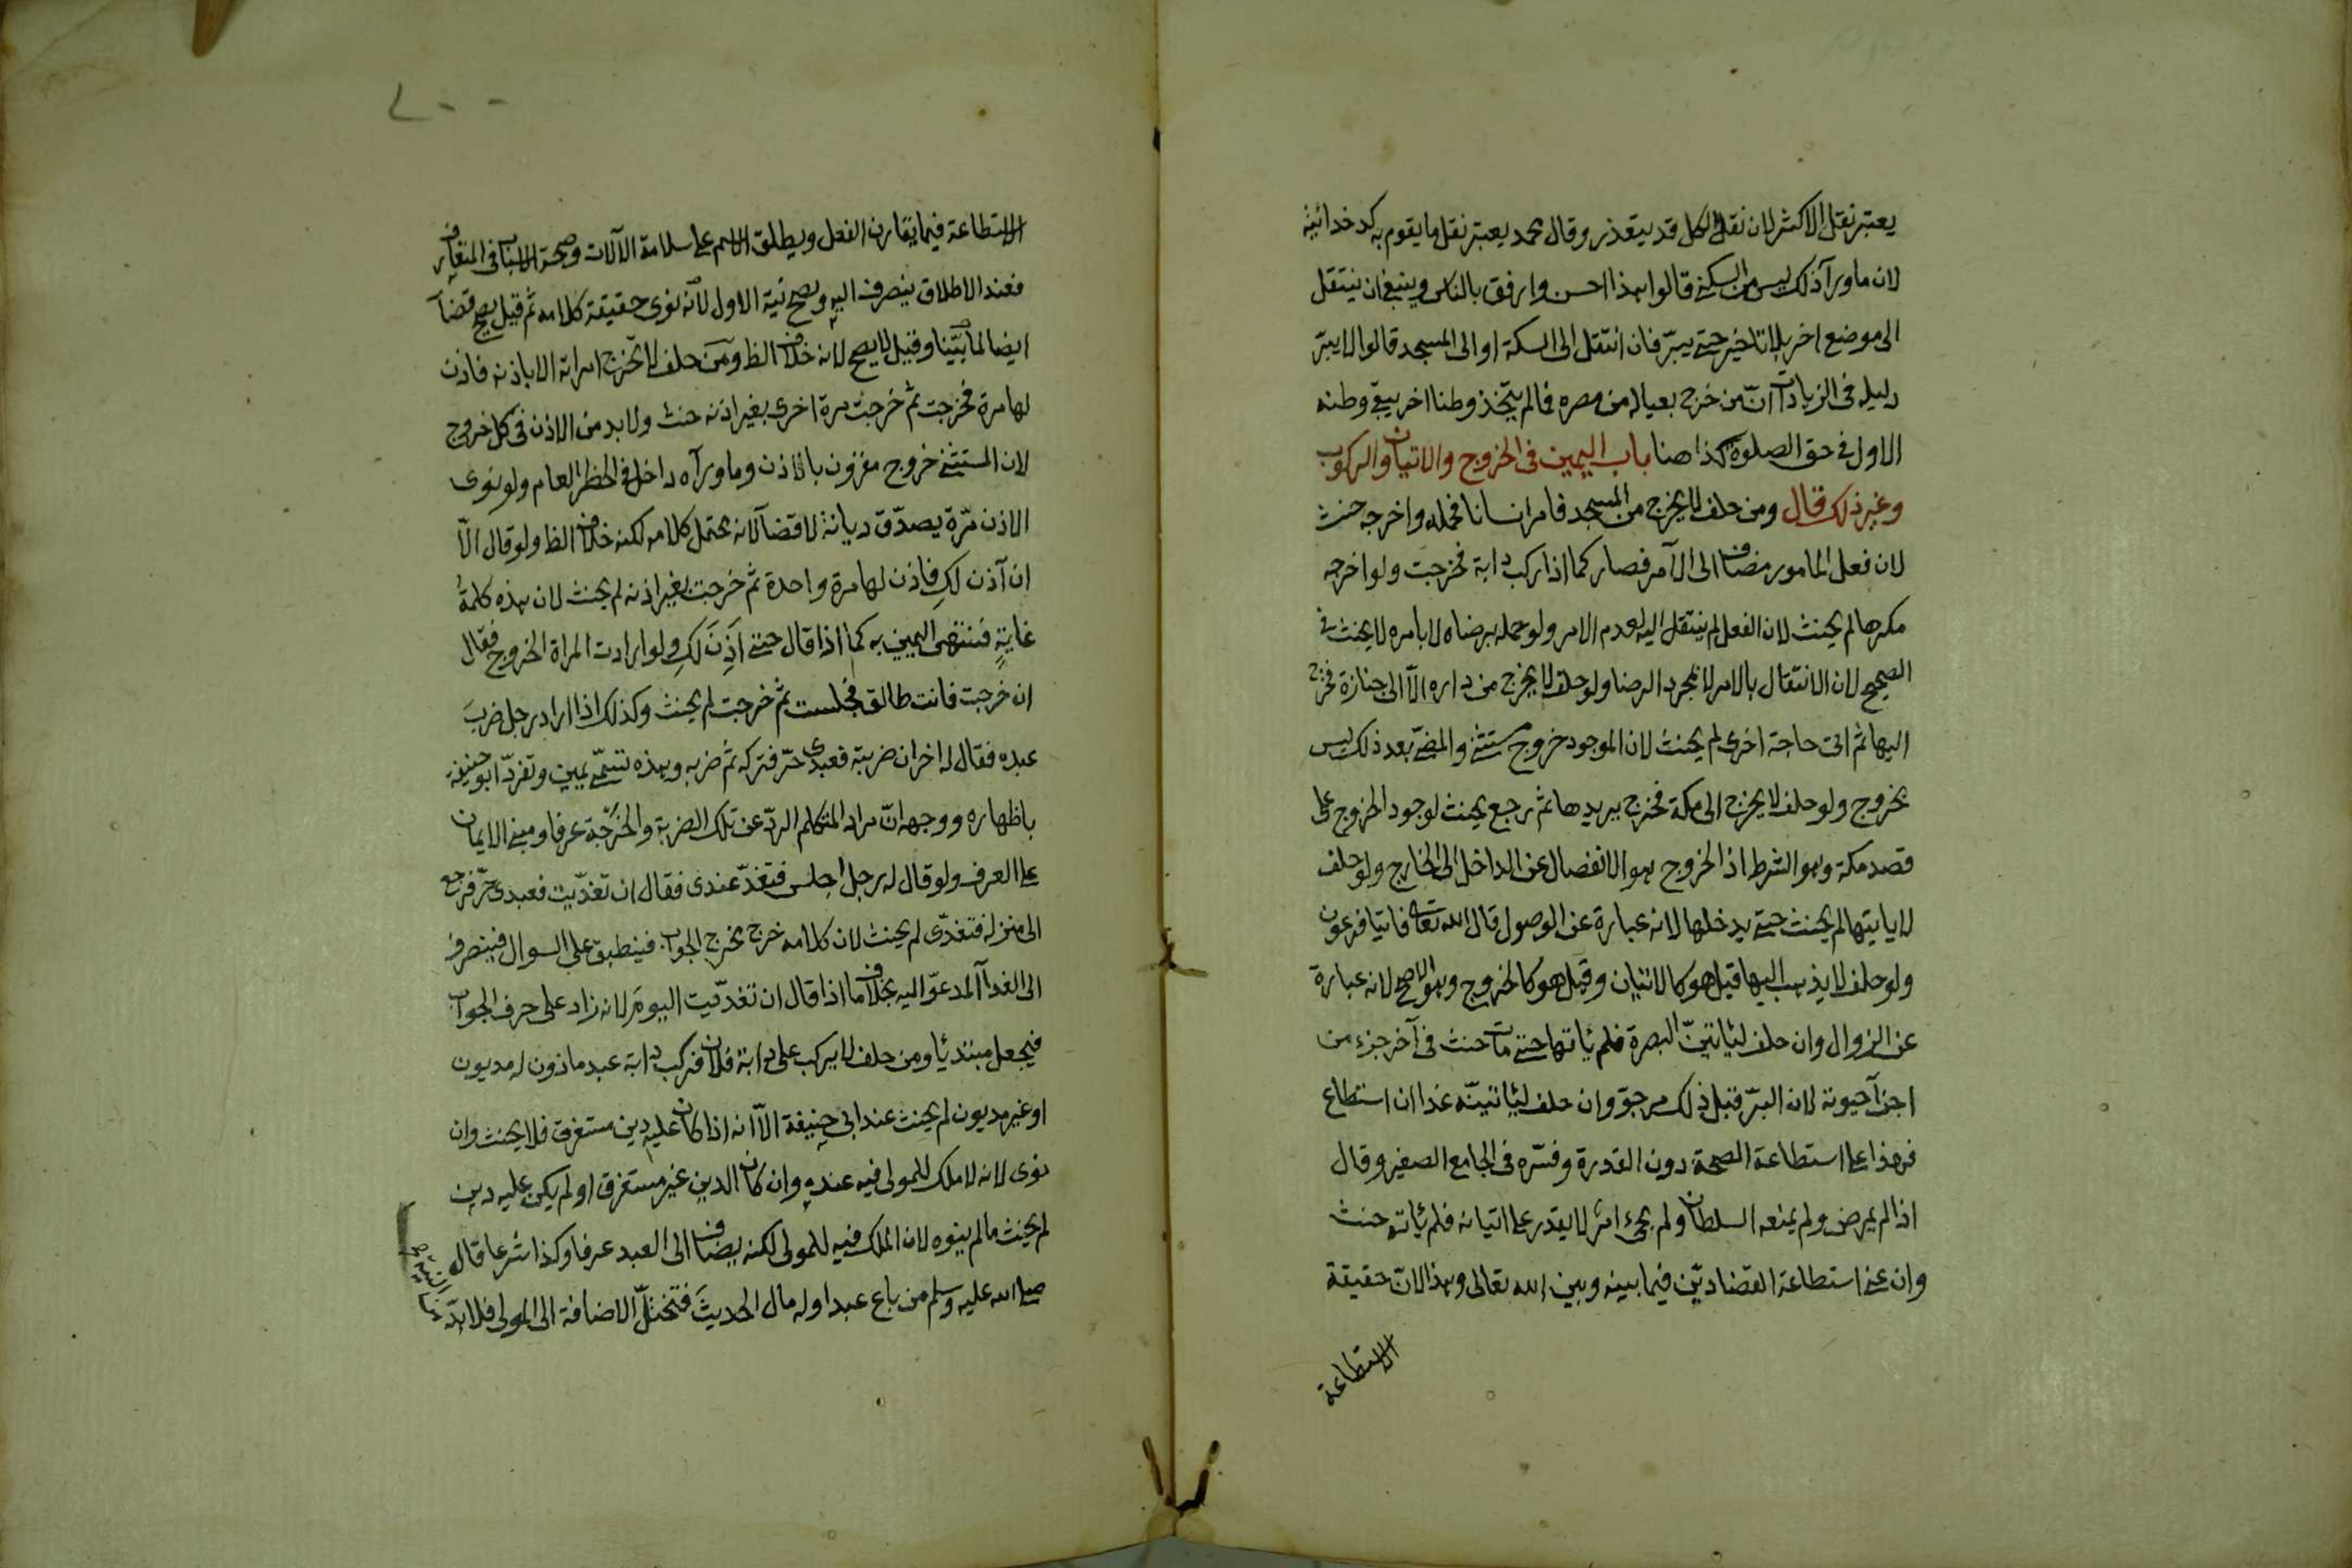 يعتبر نقل الاكثر لان نقل الكل قد يتعذر وقال محمد يعتبر نقل ما يقوم به كدخدائيته
لان ما ورآ ذلك ليس من السكنى قالوا هذا احسن وارفق بالناس وينبغى ان ينتقل
الى موضع اخر بلا تاخير حتى يبرّ فان انتقل الى السكة او الى المسجد قالوا لا يبرّ
دليله فى الزيادات انّ من خرج بعياله من مصره فما لم يتخذ وطنا اخر يبقى وطنه
الاول فى حق الصلوة كذا هنا باب اليمين فى الخروج والاتيان والركوب
وغير ذلك قال ومن حلف لا يخرج من المسجد فامر انسانا فحمله واخرجه حنث
لان فعل المامور مضاف الى الآمر فصار كما اذا ركب دابة فخرجت ولو اخرجه
مكرها لم يحنث لان الفعل لم ينتقل اليه لعدم الامر ولو حمله برضاه لا بامره لا يحنث فى
الصحيح لان الانتقال بالامر لا بمجرد الرضا ولو حلف لا يخرج من داره الّا الى جنازة فخرج
اليها ثم اتى حاجة اخرى لم يحنث لان الموجود خروج مستثنى والمضىّ بعد ذلك ليس
بخروج ولو حلف لا يخرج الى مكة فخرج يريدها ثم رجع يحنث لوجود الخروج على
قصد مكة وهو الشرط اذ الخروج هو الانفصال عن الداخل الى الخارج ولو حلف
لا ياتيها لم يحنث حتى يدخلها لانه عبارة عن الوصول قال الله تعا فاتيا فرعون
ولو حلف لا يذهب اليها قيل هو كالاتيان وقيل هو كالخروج وهو الاصح لانه عبارة
عن الزوال وان حلف لياتينّ البصرة فلم ياتها حتى مات حنث فى آخر جزء من
اجزآ حيوته لان البرّ قبل ذلك مرجوّ وان حلف لياتينّه غدا ان استطاع
فهذا على استطاعة الصحة دون القدرة وفسّره فى الجامع الصغير وقال
اذا لم يمرض ولم يمنعه السلطان ولم يجئ امر لا يقدر على اتيانه فلم ياته حنث
وان عنى استطاعة القضا ديّن فيما بينه وبين الله تعالى وهذا لانّ حقيقة
الاستطاعة
الاستطاعة فيما يقارن الفعل ويطلق الاسم على سلامة الآلات وصحة الاسباب فى المتعارف
فعند الاطلاق ينصرف اليه ويصح نية الاول لانه نوى حقيقة كلامه ثم قيل يصح قضآ
ايضا لما بيّنا وقيل لا يصح لانه خلاف الظ ومن حلف لا تخرج امراته الا باذنه فاذن
لها مرة فخرجت ثم خرجت مرة اخرى بغير اذنه حنث ولا بد من الاذن فى كل خروج
لان المستثنى خروج مقرون بالاذن وما ورآه داخل فى الحظر العام ولو نوى
الاذن مرّة يصدّق ديانة لا قضآ لانه محتمل كلامه لكنه خلاف الظ ولو قال الّا
ان آذن لكِ فاذن لها مرة واحدة ثم خرجت بغير اذنه لم يحنث لان هذه كلمةُ
غايةٍ فتنتهى اليمين به كما اذا قال حتى آذن لكِ ولو ارادت المراة الخروج فقال
ان خرجت فانت طالق فجلست ثم خرجت لم يحنث وكذلك اذا اراد رجل ضربَ
عبده فقال له اخر ان ضربته فعبدى حرّ فتركه ثم ضربه وهذه تسمّى يمين وتفرّد ابو حنيفة
باظهاره ووجهه انّ مراد المتكلم الردّ عن تلك الضربة والخرجة عرفا ومبنى الايمان
على العرف ولو قال له رجل اجلس فتغدّ عندى فقال ان تغدّيت فعبدى حرّ فرجع
الى منزله فتغدّى لم يحنث لان كلامه خرج مخرج الجواب فينطبق على السوال فينصرف
الى الغدآ المدعوّ اليه بخلاف ما اذا قال ان تغدّيت اليوم لانه زاد على حرف الجواب
فيجعل مبتدئا ومن حلف لا يركب على دابة فلان فركب دابة عبد ماذون له مديون
او غير مديون لم يحنث عند ابى حنيفة الّا انه اذا كان عليه دين مستغرق فلا يحنث وان
نوى لانه لا ملك للمولى فيه عنده وان كان الدين غير مستغرق او لم يكن عليه دين
لم يحنث ما لم ينوه لان الملك فيه للمولى لكنه يضاف الى العبد عرفا وكذا شرعا قال
صلى الله عليه وسلم من باع عبدا وله مال الحديثَ فتختلّ الاضافة الى المولى فلا بدّ